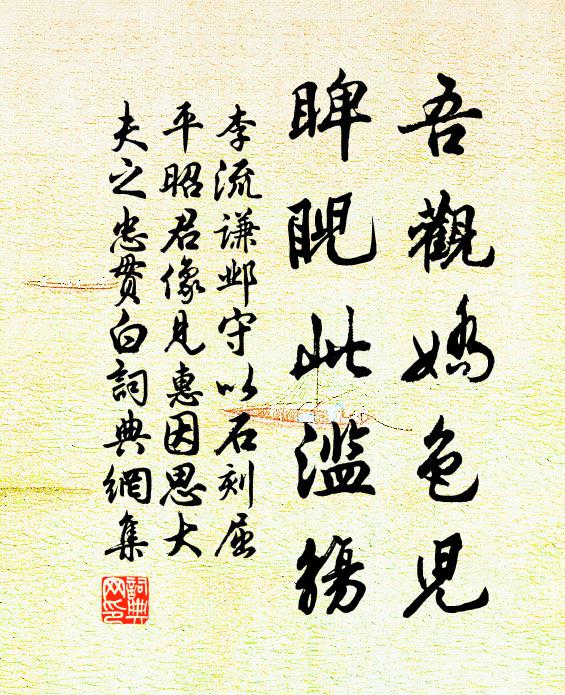 吾觀嬌色兒
睥睨此濫觴
李流謙邺守以石刻屈
平昭君像見惠因思大
夫之忠貫白詞典網集
詞典网印